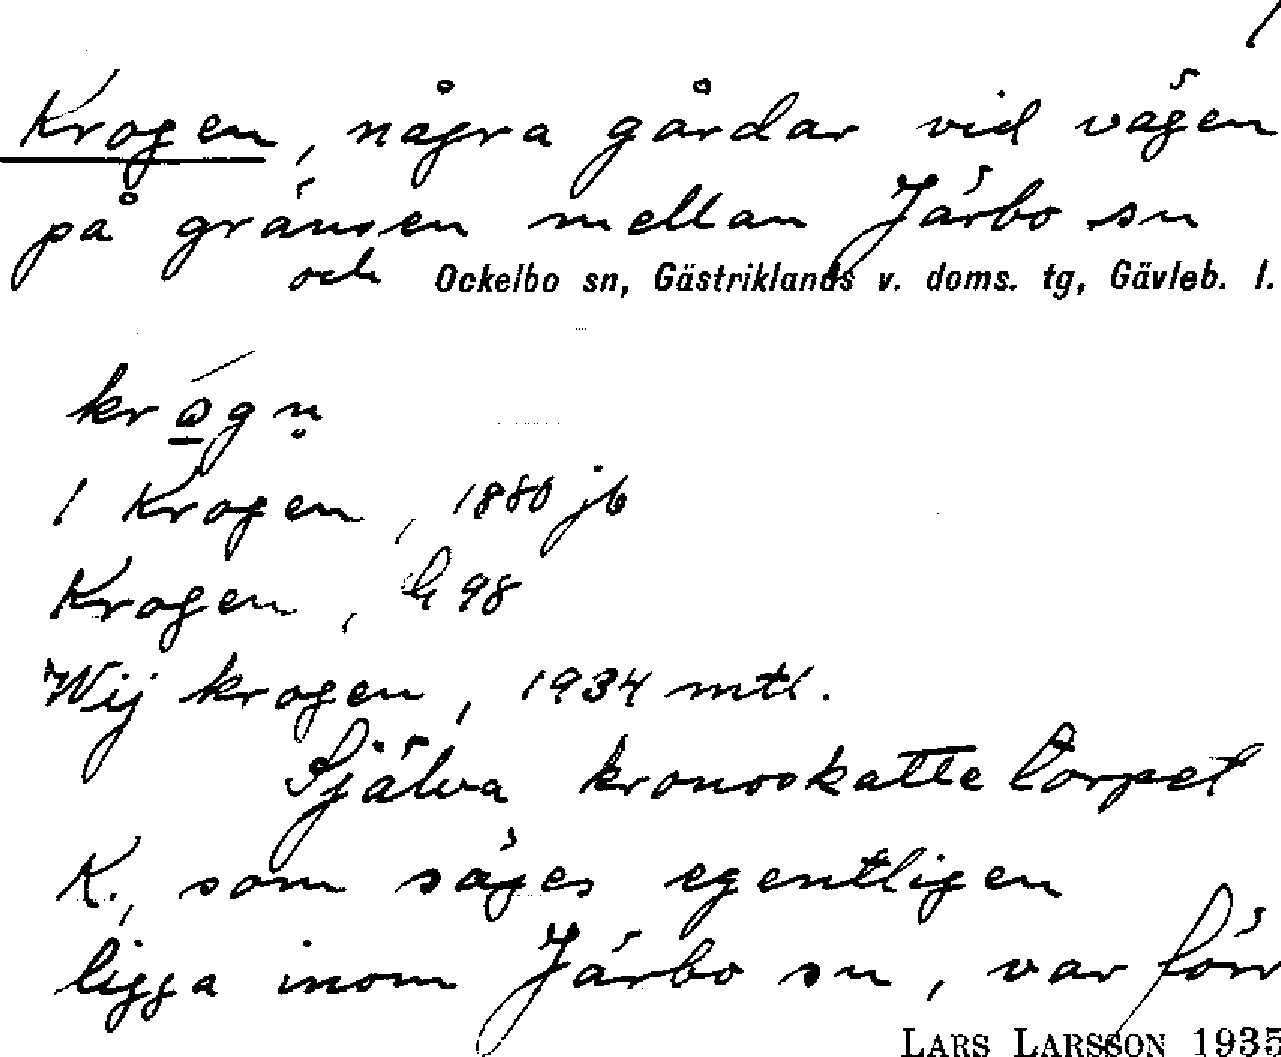 1
Krogen, några gårdar vid vägen
på gränsen mellan Järbo sn
och Ockelbo sn, Gästriklands v. doms. tg, Gävleb. l.
1 Krogen, 1880 jb
Krogen, G 98
Wij krogen, 1934 mtl.
Själva kronoskattetorpet
K., som säges egentligen
ligga inom Järbo sn, var förr
LARS LARSSON 1935